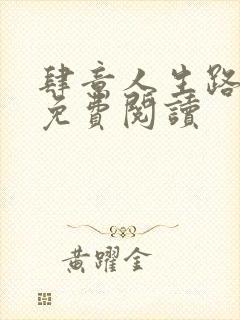 肆意人生路
免費閱讀
黃躍金